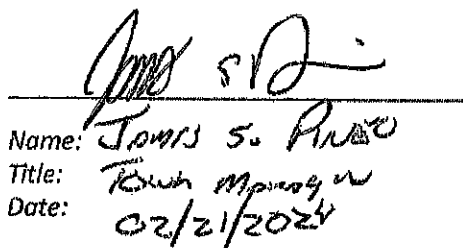 Name: James S. Pineo
Title: Town Manager
Date: 02/21/2024